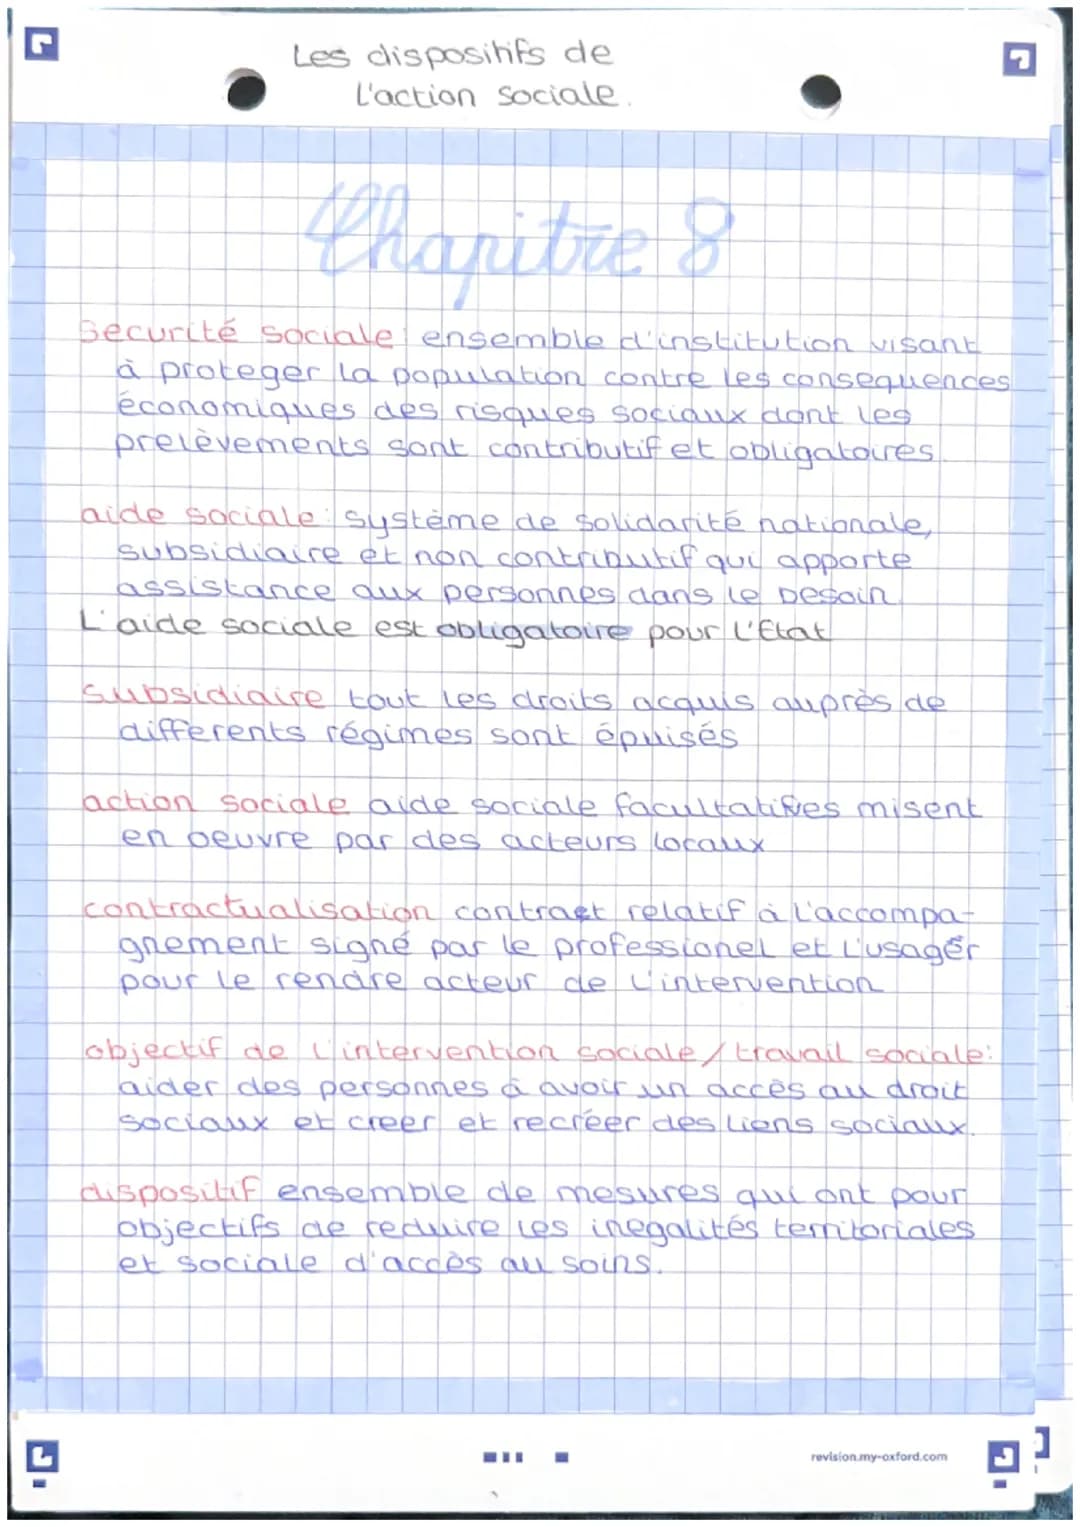 Les dispositifs de
l'action sociale.
Chapitre 8
Securité sociale: ensemble d'institution visant
à proteger la population contre les consequences
économiques des risques sociaux dont les
prelèvements sont contributif et obligatoires.
aide sociale: système de solidarité nationale,
subsidiaire et non contributif qui apporte
assistance aux personnes dans le besoin.
L'aide sociale est obligatoire pour l'Etat
subsidiaire tout les droits acquis auprès de
differents régimes sont épuisés
action sociale aide sociale facultatives misent
en oeuvre par des acteurs locaux
contractualisation contract relatif à l'accompa-
gnement signé par le professionel et l'usager
pour le rendre acteur de l'intervention
objectif de l'intervention sociale/travail sociale:
aider des personnes à avoir un accès au droit
sociaux et creer et recréer des liens sociaux.
dispositif ensemble de mesures qui ont pour
objectifs de reduire les inegalités territoriales
et sociale d'accès au soins.
revision.my-oxford.com